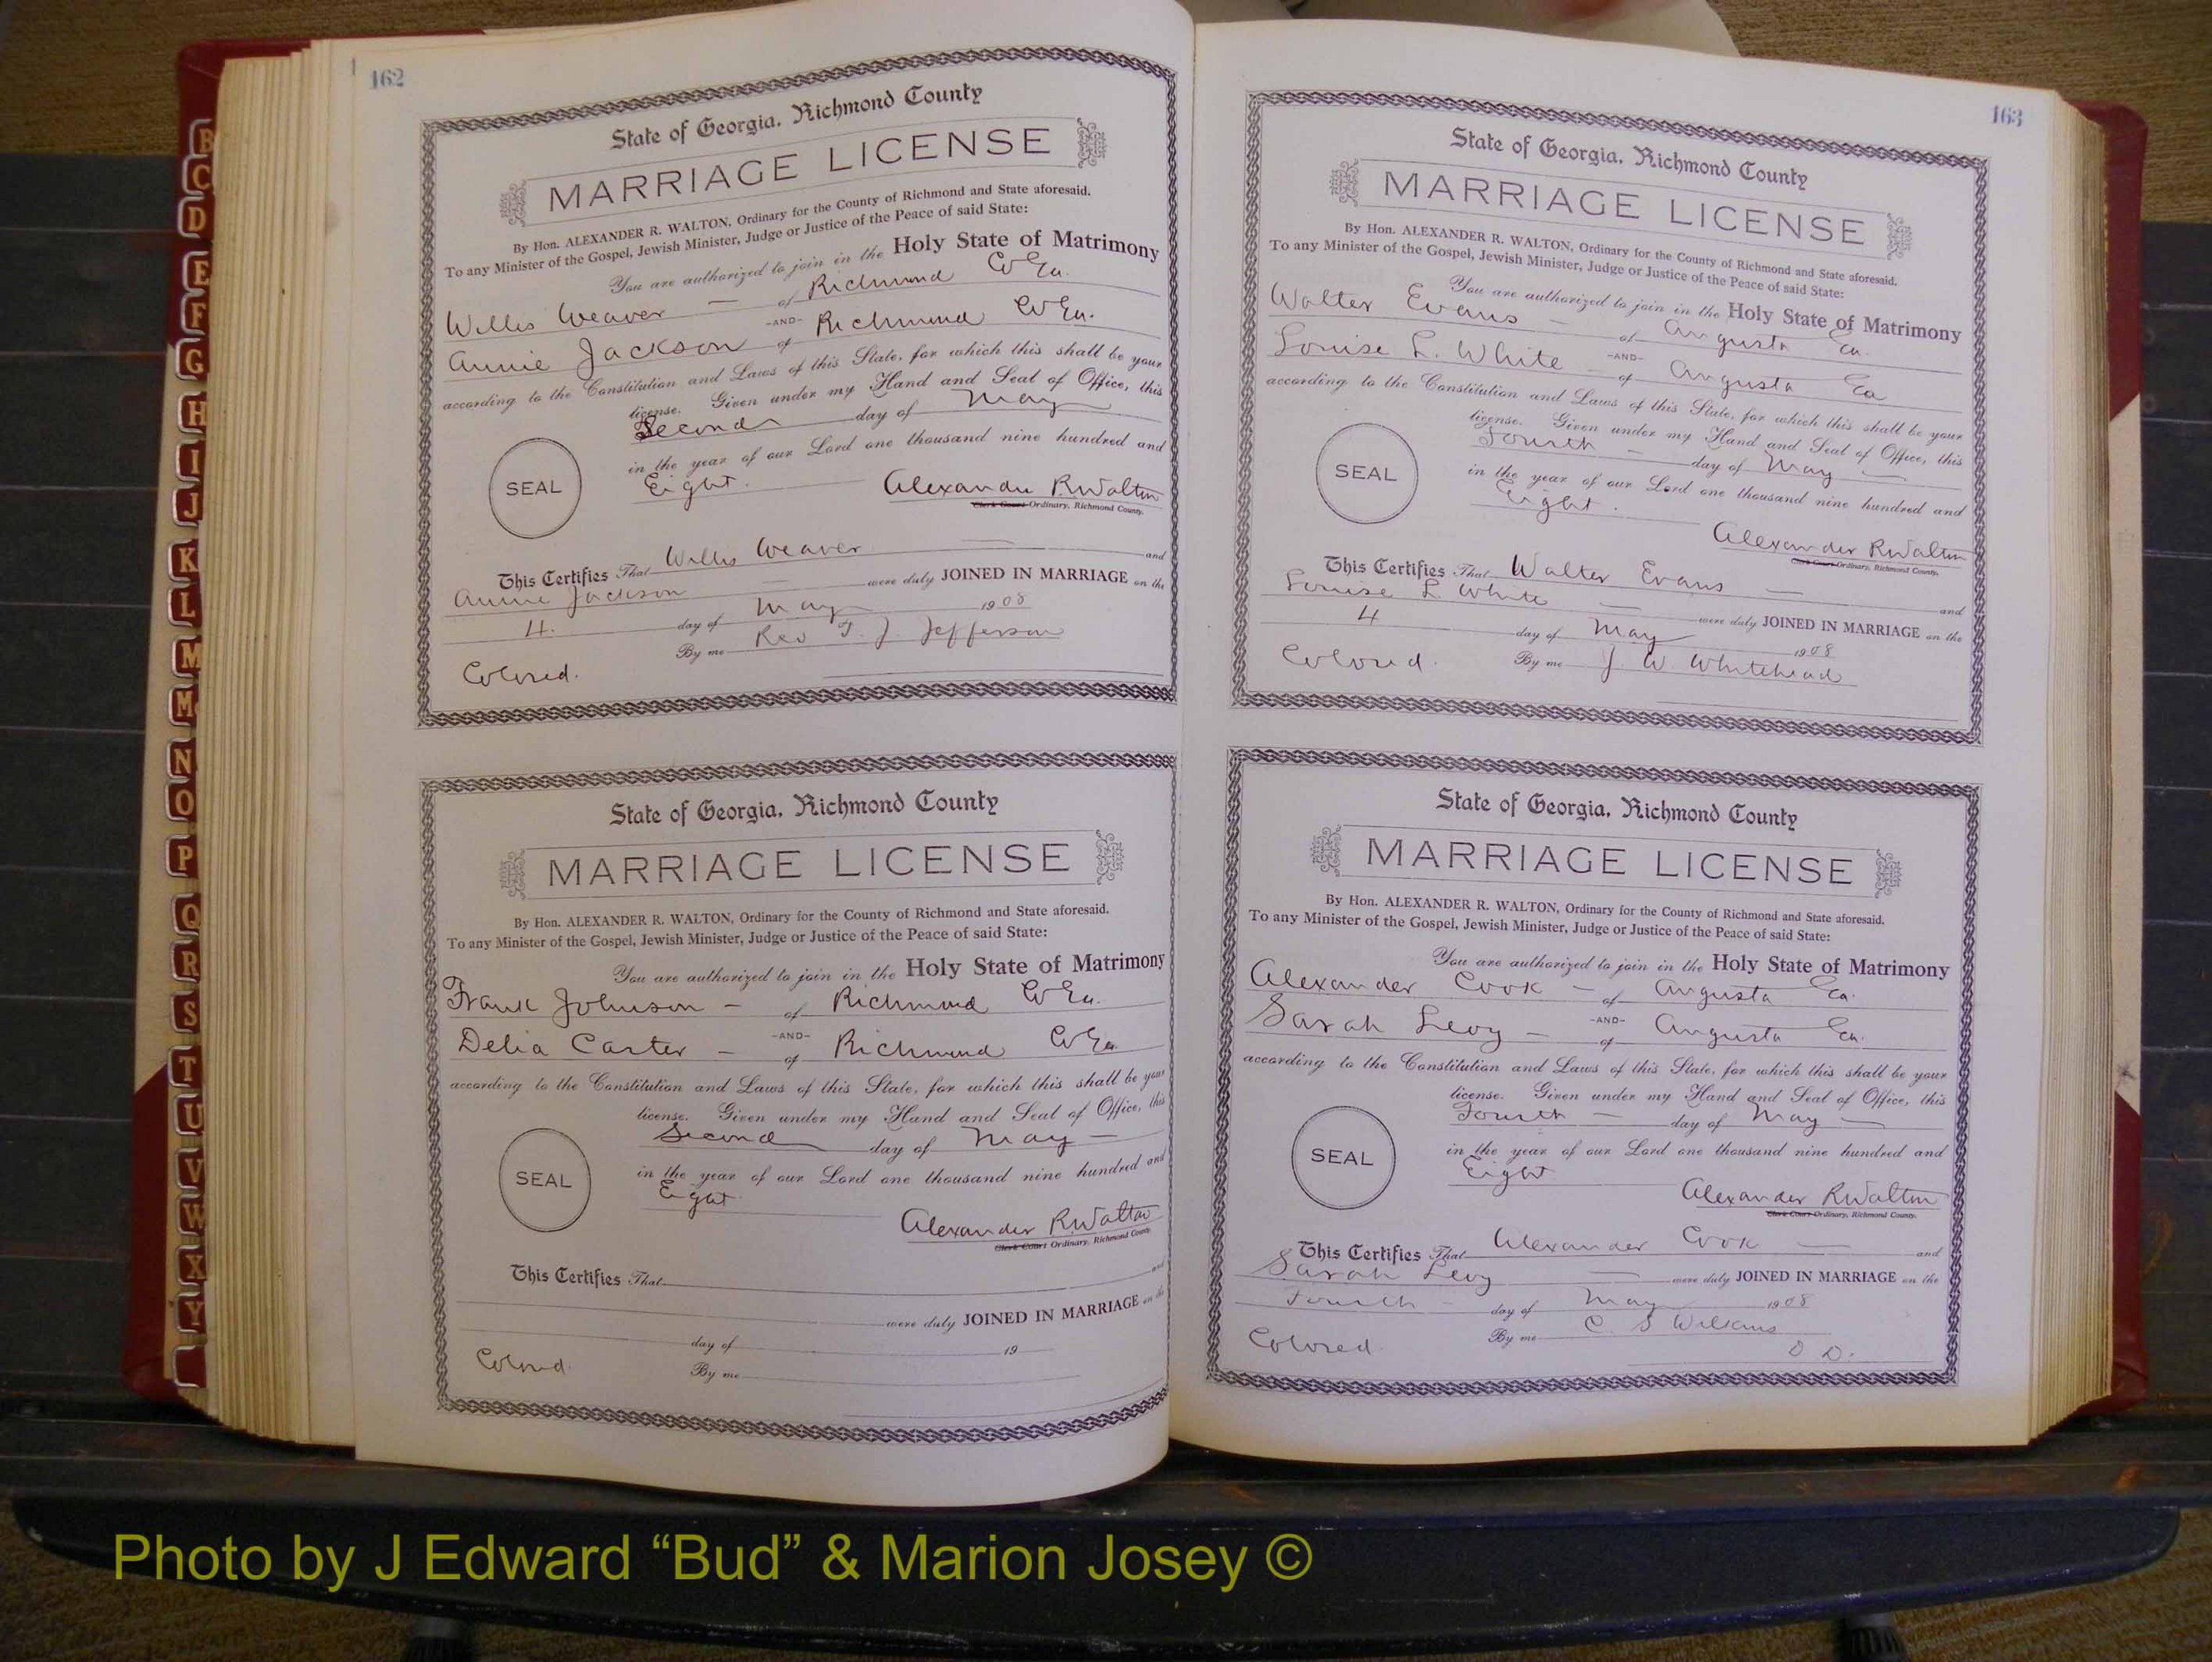 162
State of Georgia, Richmond County
MARRIAGE LICENSE
By Hon. ALEXANDER R. WALTON, Ordinary for the County of Richmond and State aforesaid.
To any Minister of the Gospel, Jewish Minister, Judge or Justice of the Peace of said State:
You are authorized to join in the Holy State of Matrimony
Willis Weaver — of Richmond Co Ga.
-AND-
Annie Jackson of Richmond Co Ga.
according to the Constitution and Laws of this State, for which this shall be your
license. Given under my Hand and Seal of Office, this
Second day of May
in the year of our Lord one thousand nine hundred and
SEAL
Eight.
Alexander R Walton
Clerk Court Ordinary, Richmond County.
This Certifies That Willis Weaver — and
Annie Jackson — were duly JOINED IN MARRIAGE on the
4. day of May 1908
By me Rev T. J. Jefferson
Colored.
State of Georgia, Richmond County
MARRIAGE LICENSE
By Hon. ALEXANDER R. WALTON, Ordinary for the County of Richmond and State aforesaid.
To any Minister of the Gospel, Jewish Minister, Judge or Justice of the Peace of said State:
You are authorized to join in the Holy State of Matrimony
Frank Johnson — of Richmond Co Ga.
-AND-
Delia Carter — of Richmond Co Ga
according to the Constitution and Laws of this State, for which this shall be your
license. Given under my Hand and Seal of Office, this
Second day of May —
in the year of our Lord one thousand nine hundred and
SEAL
Eight
Alexander R Walton
Clerk Court Ordinary, Richmond County.
This Certifies That and
were duly JOINED IN MARRIAGE on the
day of 19
Colored.
By me
163
State of Georgia, Richmond County
MARRIAGE LICENSE
By Hon. ALEXANDER R. WALTON, Ordinary for the County of Richmond and State aforesaid.
To any Minister of the Gospel, Jewish Minister, Judge or Justice of the Peace of said State:
You are authorized to join in the Holy State of Matrimony
Walter Evans — of Augusta Ga.
-AND-
Louise L. White — of Augusta Ga
according to the Constitution and Laws of this State, for which this shall be your
license. Given under my Hand and Seal of Office, this
Fourth — day of May —
in the year of our Lord one thousand nine hundred and
SEAL
Eight.
Alexander R Walton
Clerk Court Ordinary, Richmond County.
This Certifies That Walter Evans — and
Louise L. White — were duly JOINED IN MARRIAGE on the
4 day of May 1908
Colored. By me J. W Whitehead
State of Georgia, Richmond County
MARRIAGE LICENSE
By Hon. ALEXANDER R. WALTON, Ordinary for the County of Richmond and State aforesaid.
To any Minister of the Gospel, Jewish Minister, Judge or Justice of the Peace of said State:
You are authorized to join in the Holy State of Matrimony
Alexander Cook — of Augusta Ga.
-AND-
Sarah Levy — of Augusta Ga.
according to the Constitution and Laws of this State, for which this shall be your
license. Given under my Hand and Seal of Office, this
Fourth — day of May —
in the year of our Lord one thousand nine hundred and
SEAL
Eight
Alexander R Walton
Clerk Court Ordinary, Richmond County.
This Certifies That Alexander Cook — and
Sarah Levy — were duly JOINED IN MARRIAGE on the
Fourth — day of May 1908
Colored. By me C. S Wilkins
D D.
B
C
D
E
F
G
H
I
J
K
L
M
Mc
N
O
P
Q
R
S
T
U
V
W
X
Y
Photo by J Edward “Bud” & Marion Josey ©